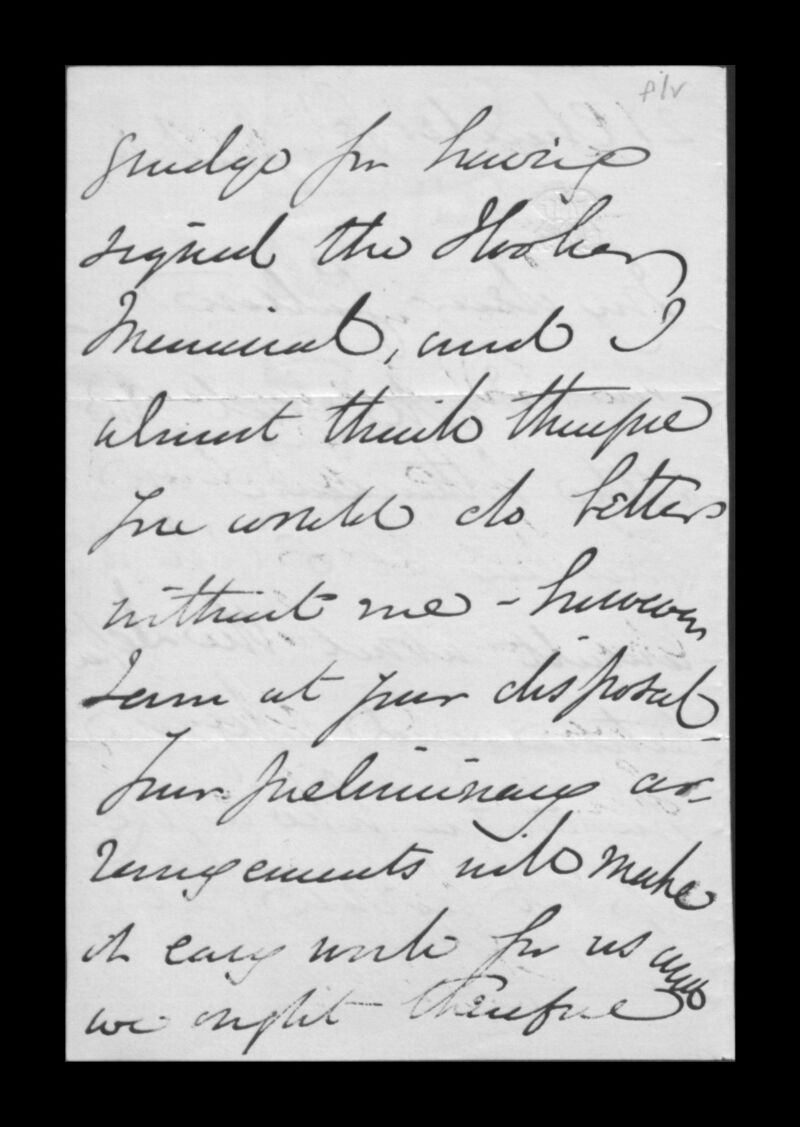 grudge for having
signed the Hooker
Memorial, and I
almost think therefore
you would do better
without me - however
I am at your disposal -
Your preliminary ar-
rangements will make
it easy work for us and
we ought therefore